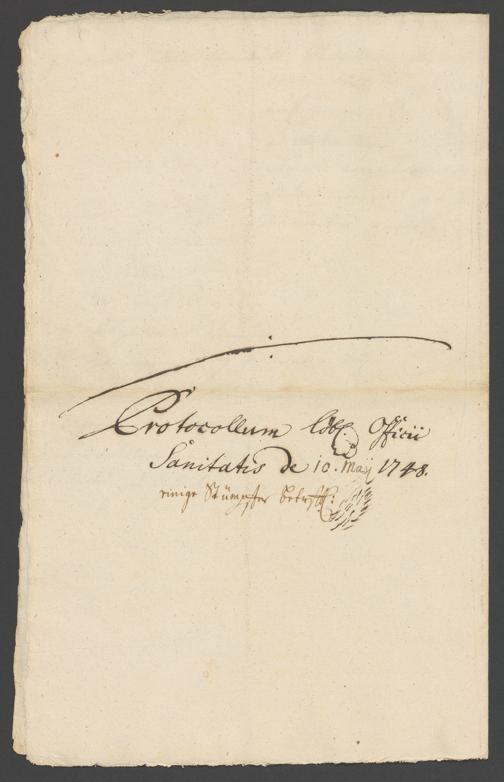 Protocollum Löbl. Officii
Sanitatis de 10. Maÿ 1748.
einige Stümpfer betreff: